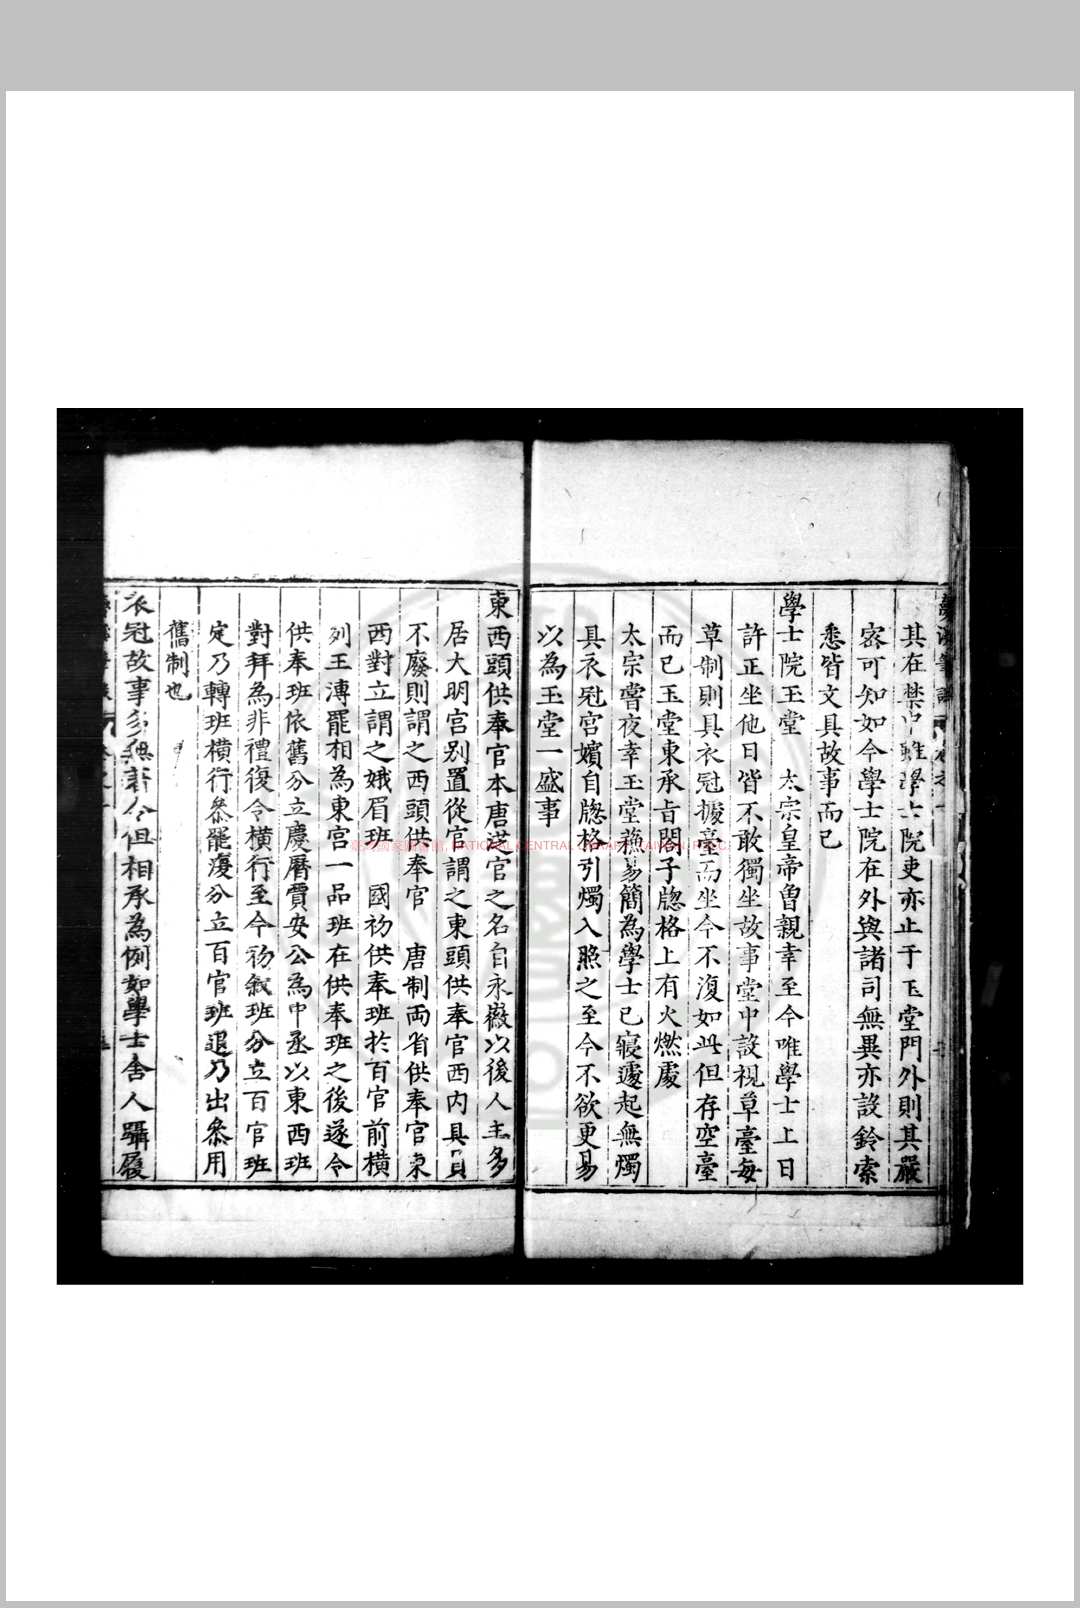 其在禁中雖學士院吏亦止于玉堂門外則其嚴
密可知如今學士院在外與諸司無異亦設鈴索
悉皆文具故事而已
學士院玉堂 太宗皇帝曾親幸至今唯學士上日
許正坐他日皆不敢獨坐故事堂中設視草臺每
草制則具衣冠據臺而坐今不復如此但存空臺
而已玉堂東承旨閣子牕格上有火燃處
太宗嘗夜幸玉堂蘇易簡為學士已寢遽起無燭
具衣冠宮嬪自牕格引燭入照之至今不欲更易
以為玉堂一盛事
東西頭供奉官本唐從官之名自永徽以後人主多
居大明宮别置從官謂之東頭供奉官西内具員
不廢則謂之西頭供奉官 唐制兩省供奉官東
西對立謂之娥眉班 國初供奉班扵百官前横
列王溥罷相為東宮一品班在供奉班之後遂令
供奉班依舊分立慶曆賈安公為中丞以東西班
對拜為非禮復令横行至今初叙班分立百官班
定乃轉班横行叅罷復分立百官班退乃出叅用
舊制也
衣冠故事多無著令但相承為例如學士舍人躡履
臺灣國家圖書館, NATIONAL CENTRAL LIBRARY, TAIWAN, R.O.C.